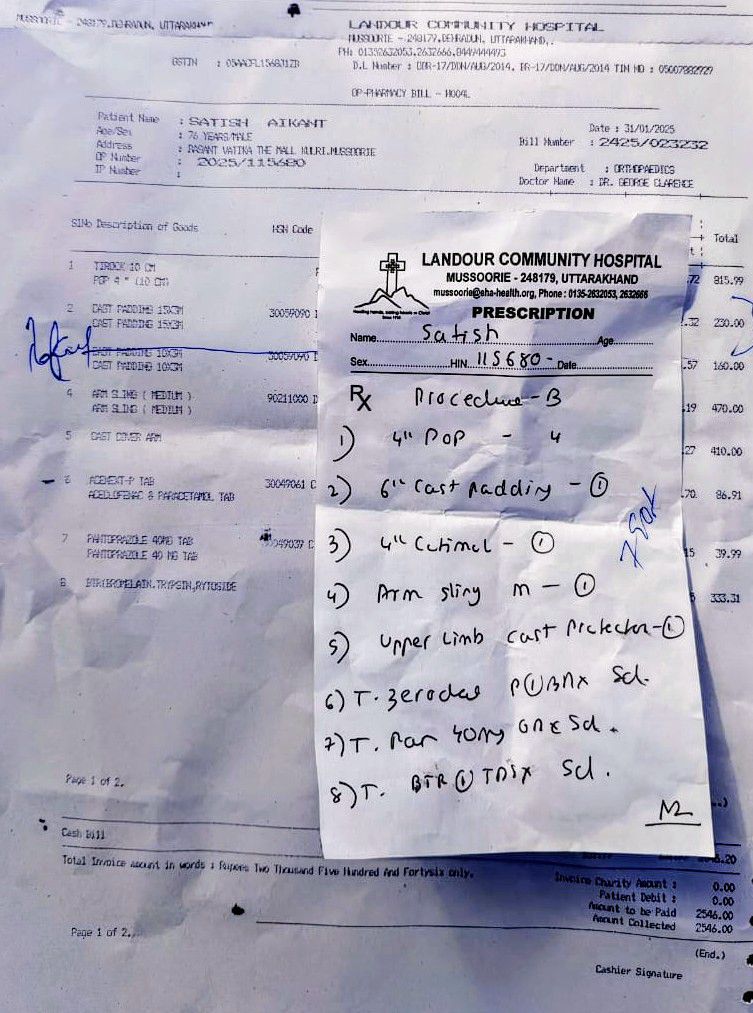 MUSSOORIE - 248179, DEHRADUN, UTTARAKHAND
LANDOUR COMMUNITY HOSPITAL
MUSSOORIE - 248179, DEHRADUN, UTTARAKHAND,.
PH: 01352632053,2632666,8449444493
GSTIN : 05AACFL1568J1ZB
D.L Number : OBR-17/DDN/AUG/2014, BR-17/DDN/AUG/2014 TIN NO : 05007882929
OP-PHARMACY BILL - HO04L
Patient Name : SATISH AIKANT
Age/Sex : 76 YEARS/MALE
Address : BASANT VATIKA THE MALL KULRI,MUSSOORIE
OP Number : 2025/115680
IP Number :
Date : 31/01/2025
Bill Number : 2425/023232
Department : ORTHOPAEDICS
Doctor Name : DR. GEORGE CLARENCE
SlNo Description of Goods HSN Code Total
1 TIROCK 10 CM 72 815.99
POP 4 " (10 CM)
2 CAST PADDING 15X3M 30059090 .32 230.00
CAST PADDING 15X3M
CAST PADDING 10X3M 30059090 D .57 160.00
CAST PADDING 10X3M
4 ARM SLING ( MEDIUM ) 90211000 D 19 470.00
ARM SLING ( MEDIUM )
5 CAST COVER ARM 27 410.00
6 ACENEXT-P TAB 30049061 C .70 86.91
ACECLOFENAC & PARACETAMOL TAB
7 PANTOPRAZOLE 40MG TAB 049037 C 15 39.99
PANTOPRAZOLE 40 MG TAB
8 BTR(BROMELAIN,TRYPSIN,RYTOSIDE 333.31
LANDOUR COMMUNITY HOSPITAL
MUSSOORIE - 248179, UTTARAKHAND
mussoorie@eha-health.org, Phone : 0135-2632053, 2632666
PRESCRIPTION
Name Satish Age
Sex HIN 115680- Date
Rx Procedure - B
1) 4" POP - 4
2) 6" Cast padding - 1
3) 4" - 1
4) Arm sling m - 1
5) Upper Limb cast protector - 1
6) T. Zerodol P 1 5d.
7) T. Pan 40mg 5d.
8) T. BTR 1 TDSX 5d.
Page 1 of 2.
Cash Bill
Total Invoice amount in words : Rupees Two Thousand Five Hundred And Fortysix only.
.20
Invoice Charity Amount : 0.00
Patient Debit : 0.00
Amount to be Paid 2546.00
Amount Collected 2546.00
Page 1 of 2.
(End.)
Cashier Signature